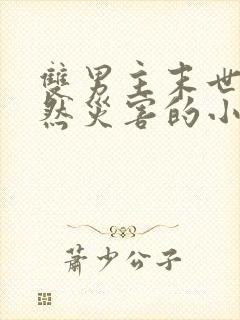 雙男主末世
然災害的小
蕭少公子